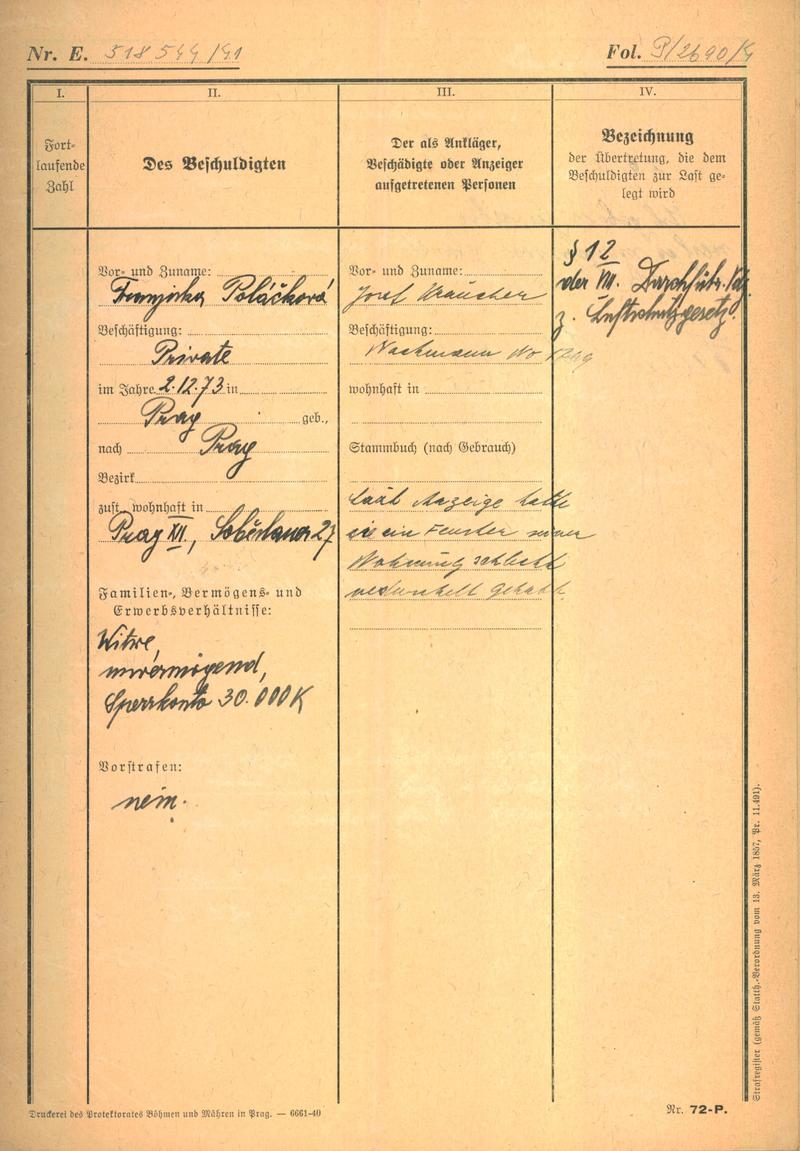 Nr. E. 518544/41
Fol. P/2690/4
I.
II.
III.
IV.
Fort-
laufende
Zahl
Des Beschuldigten
Der als Ankläger,
Beschädigte oder Anzeiger
aufgetretenen Personen
Bezeichnung
der Übertretung, die dem
Beschuldigten zur Last ge-
legt wird
Vor- und Zuname:
Franziska Poláčková
Beschäftigung:
Private
im Jahre 2.12.73 in
Prag geb.,
nach Prag
Bezirk
zust. wohnhaft in
Prag XII, Soběslauer 27
Familien-, Vermögens- und
Erwerbsverhältnisse:
Witwe,
unvermögend,
Sperrkonto 30.000 K
Vorstrafen:
nein.
Vor- und Zuname:
Josef
Beschäftigung:
Wachmann No
wohnhaft in
Stammbuch (nach Gebrauch)
laut Anzeige hatte
sie ein Fenster seiner
Wohnung schlecht
verdunkelt gehabt.
§ 12
der VII. Durchführ. Vdg.
z. Luftschutzgesetz.
Strafregister (gemäß Statth.-Verordnung vom 13. März 1857, Pr. 11.491).
Druckerei des Protektorates Böhmen und Mähren in Prag. — 6661-40
Nr. 72-P.